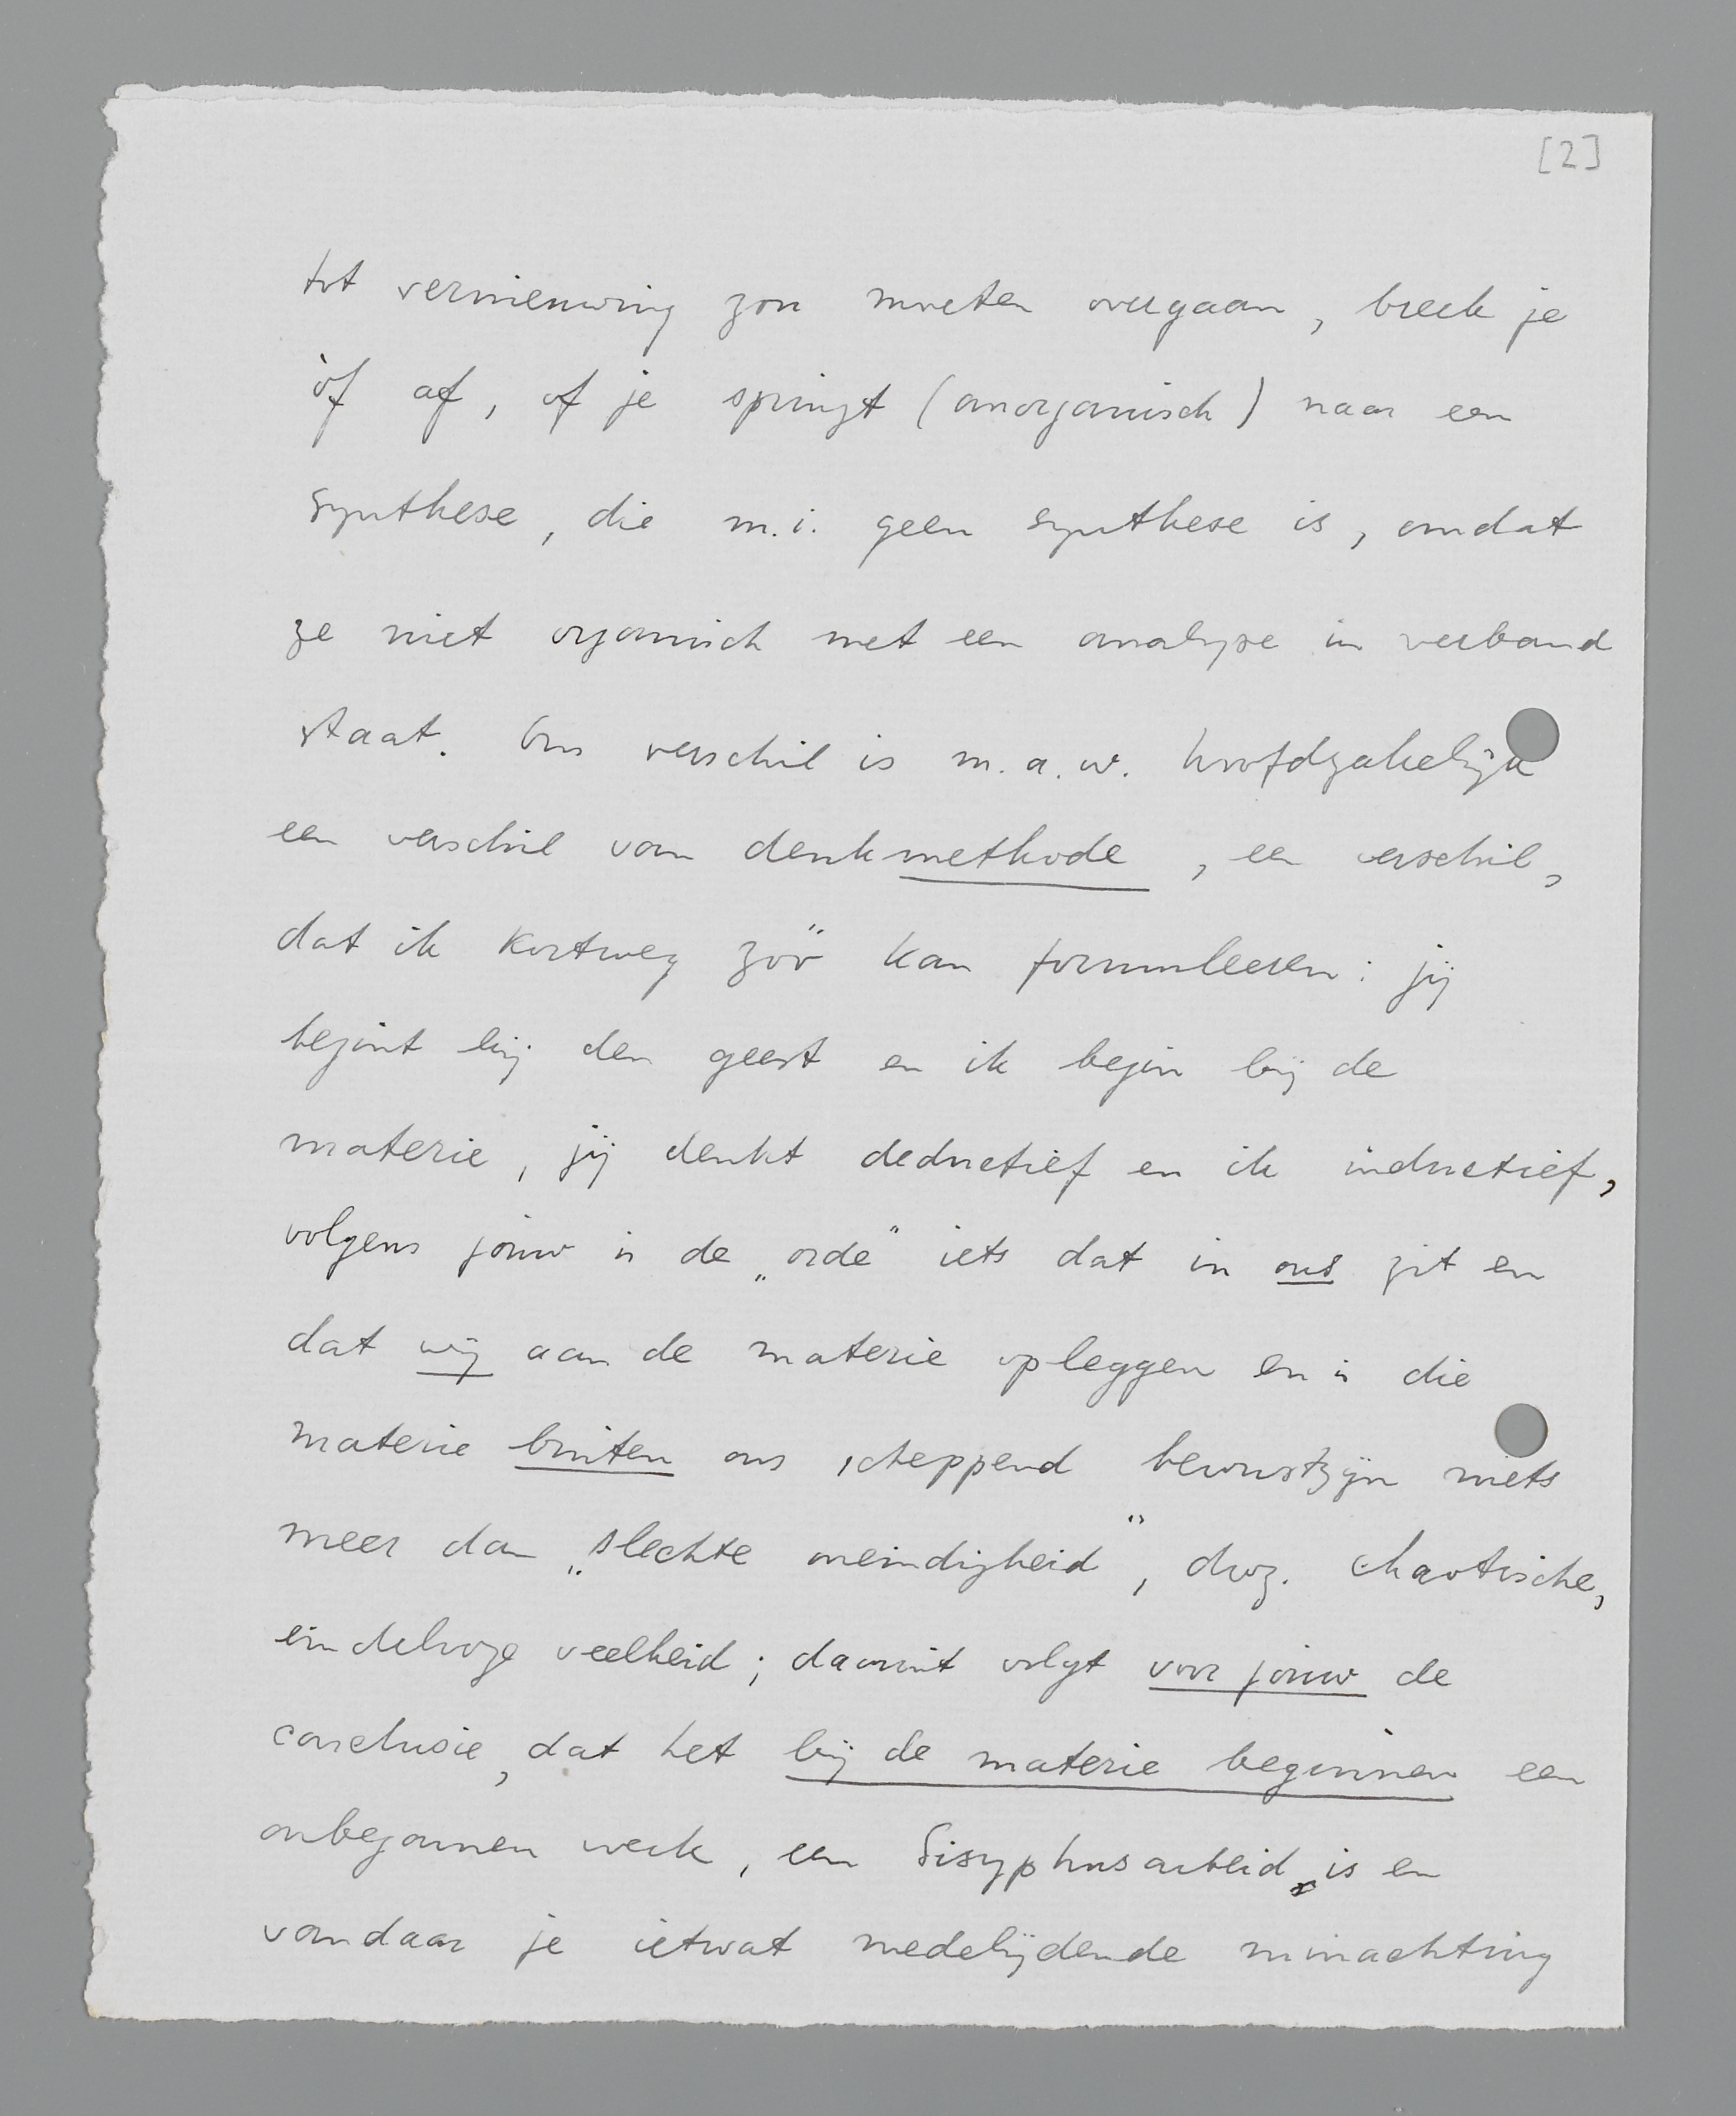 [2]
tot vernieuwing zou moeten overgaan, breek je
òf af, of je springt (anorganisch) naar een
synthese, die m.i. geen synthese is, omdat
ze niet organisch met een analyse in verband
staat. Ons verschil is m.a.w. hoofdzakelijk
een verschil van denkmethode, een verschil,
dat ik kortweg zöö kan formuleeren: jij
begint bij den geest en ik begin bij de
materie, jij denkt deductief en ik inductief,
volgens jouw is de „orde" iets dat in ons zit en
dat wij aan de materie opleggen en is die
materie buiten ons scheppend bewustzijn niets
meer dan „slechte oneindigheid", dwz. chaotische,
eindelooze veelheid; daaruit volgt voor jouw de
conclusie, dat het bij de materie beginnen een
onbegonnen werk, een Sisyphusarbeid is en
vandaar je ietwat medelijdende minachting